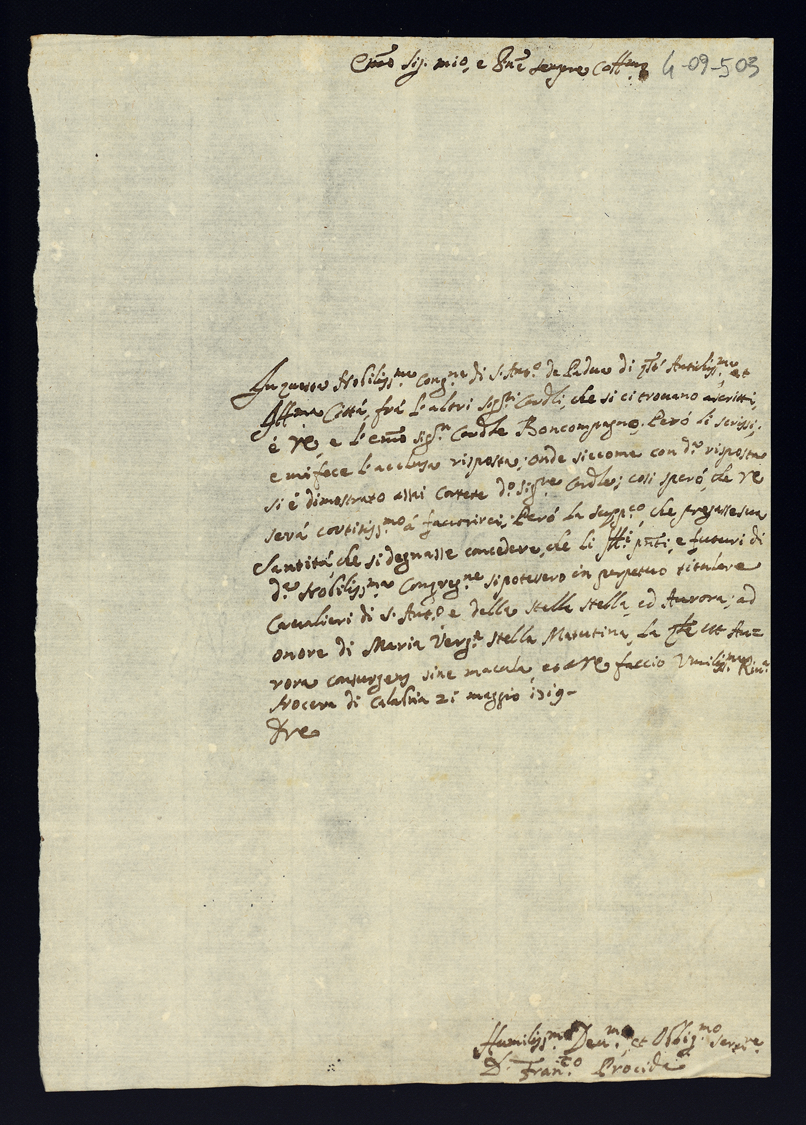 Emo Sig. mio, e Pne sempre Coll.mo 4-09-503
In questa Nobiliss.ma Cong.ne di S. Ant.o de Padua di q.ta Antichiss.ma et
Ill.ma Città, frà l'altri Sig.ri Cardli, che si ci trovano ascritti,
è VE, e l'Emo Sig.r Cardle Boncompagno. Però li scrissi,
e mi fece l'acclusa risposta; onde siccome con d.a risposta
si è dimostrato assai cortese d.o Sig.re Cardle; così sperò, che VE
serà cortesiss.mo á favorirci; Però la supp.co, che pregasse sua
Santità, che si degnasse concedere, che li f.lli p.nti, e futuri di
d.a Nobiliss.ma Congreg.ne si potessero in perpetuo titulare
Cavalieri di S. Ant.o e della stella stella, ed Aurora; ad
onore di Maria Verg.e Stella Matutina, la q.le est Au=
rora consurgens sine macula, et a VE faccio Umiliss.ma River.a
Nocera di Calabria 21 maggio 1719-
D VE
Humiliss.mo Dev.mo, et Oblig.mo Serv.re
D. Fran.co Procida